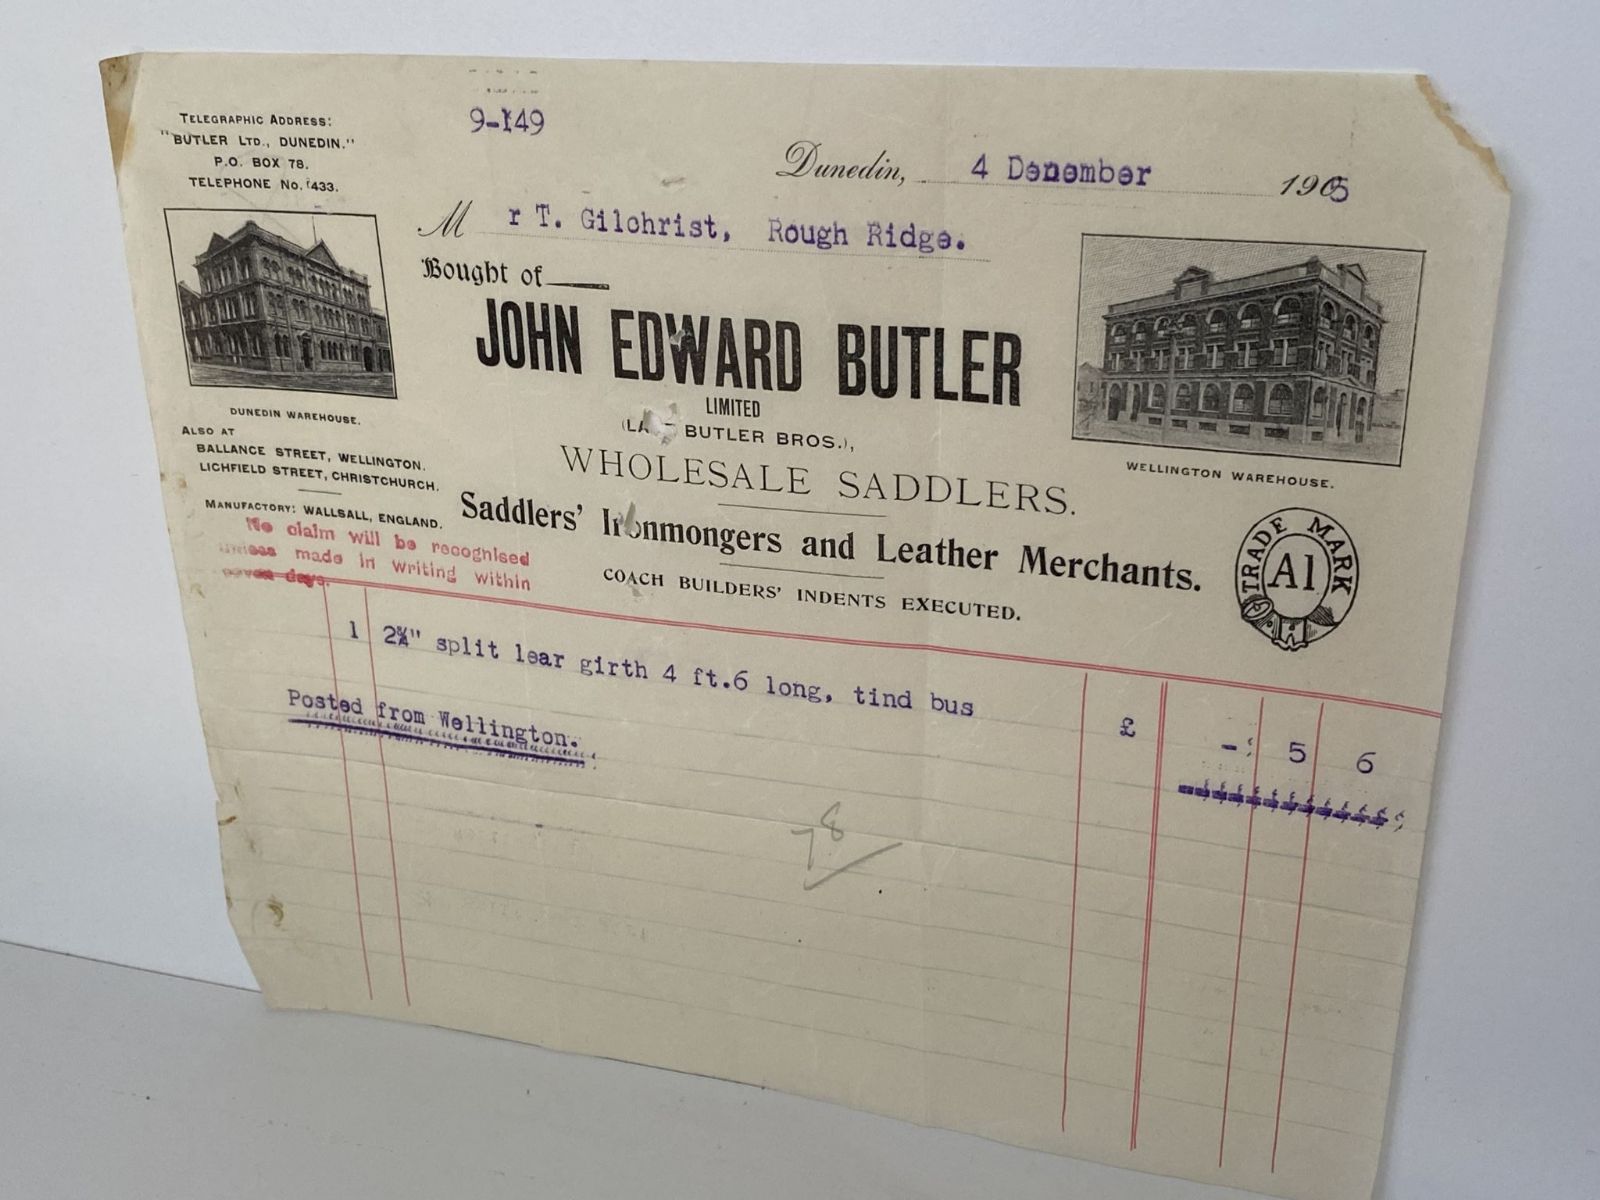 TELEGRAPHIC ADDRESS:
"BUTLER LTD., DUNEDIN."
P.O. BOX 78.
TELEPHONE No. 1433.
9-149
Dunedin, 4 Denember 1905
Mr T. Gilchrist, Rough Ridge.
Bought of
JOHN EDWARD BUTLER
LIMITED
BUTLER BROS.),
WHOLESALE SADDLERS.
Saddlers' Ironmongers and Leather Merchants.
COACH BUILDERS' INDENTS EXECUTED.
DUNEDIN WAREHOUSE.
ALSO AT
BALLANCE STREET, WELLINGTON.
LICHFIELD STREET, CHRISTCHURCH.
MANUFACTORY: WALLSALL, ENGLAND.
No claim will be recognised
unless made in writing within
seven days.
WELLINGTON WAREHOUSE.
TRADE MARK
A1
1 split lear girth 4 ft.6 long, tind bus £ - 5 6
Posted from Wellington.
78